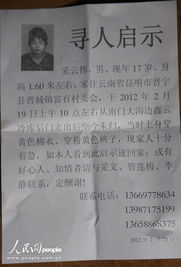 寻人启示
采云伟、男、现年17岁、身
高1.60米左右、家住云南省昆明市晋宁
县晋城镇富有村委会、于2012年2月
19日上午10点左右从南门大沟边鑫云
冷库后门走出后至今未归，当时上身穿
黄色棉衣、穿粉黄色裤子，现家人十分
着急，如本人看到此启示速回家；或有
好心人、知情者请与采文、管莲梅、李
静联系，定酬谢!
联系电话: 13669778634
13987175199
13658868375
2012年2月21日
人民网
people